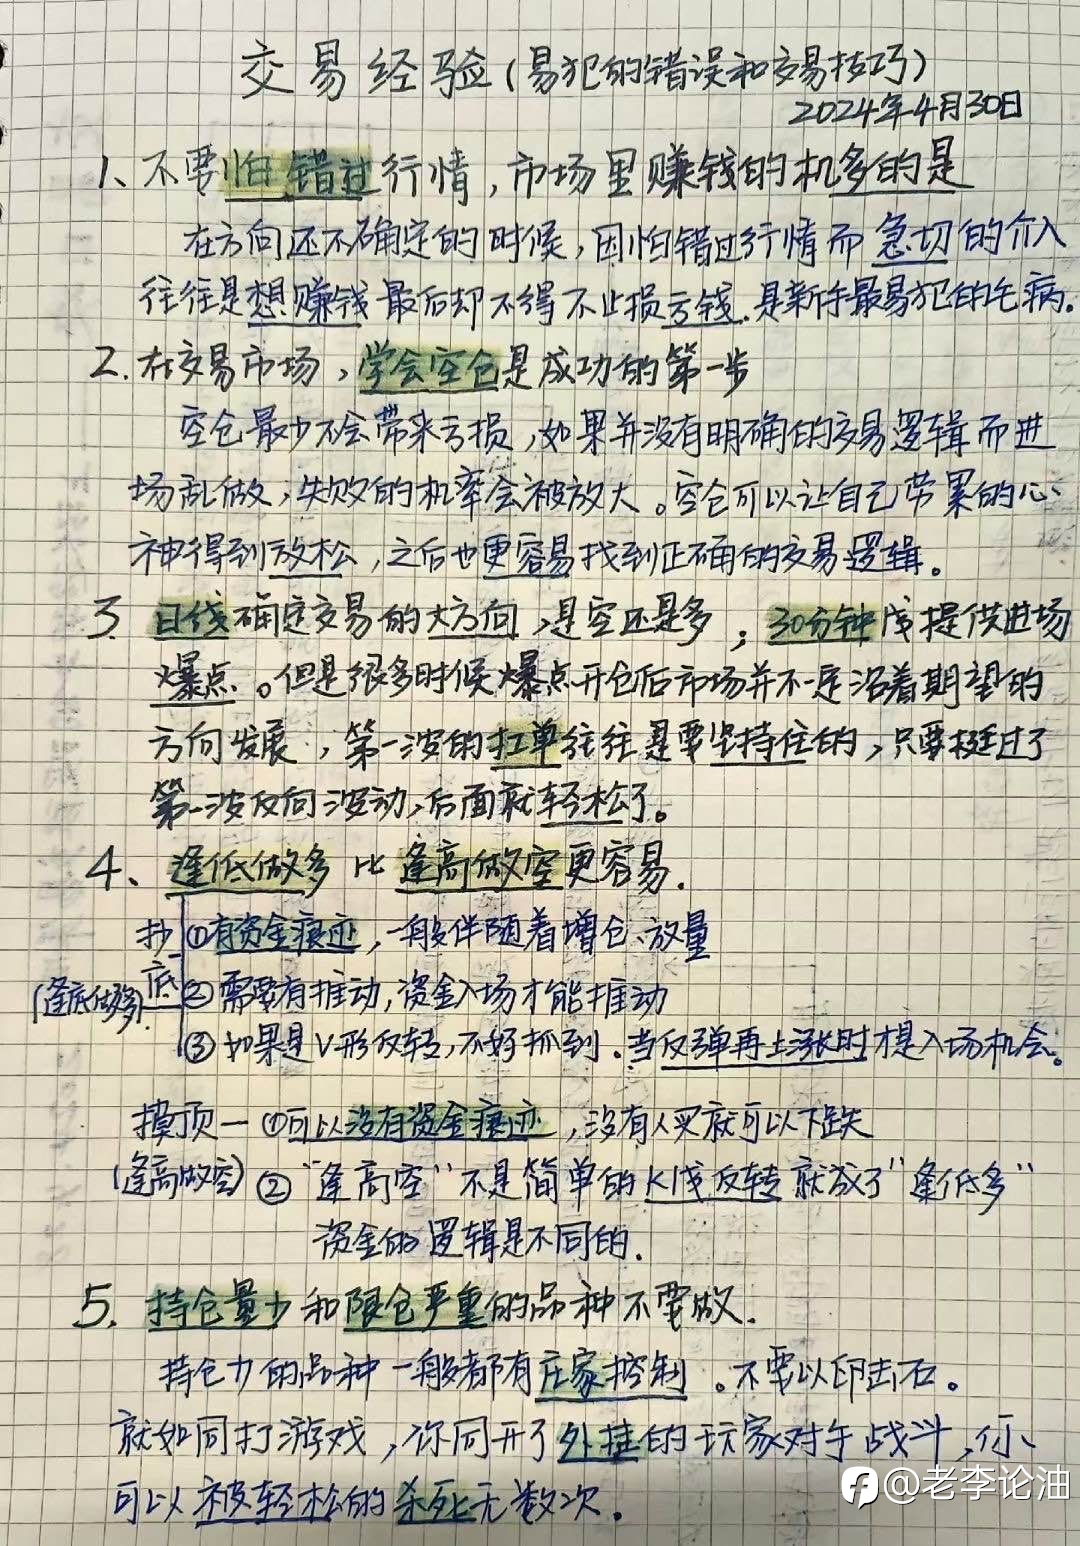 交易经验(易犯的错误和交易技巧)
2024年4月30日
1、不要怕错过行情，市场里赚钱的机多的是
在方向还不确定的时候，因怕错过行情而急切的介入
往往是想赚钱最后却不得不止损亏钱.是新手最易犯的毛病.
2.在交易市场，学会空仓是成功的第一步
空仓最少不会带来亏损,如果并没有明确的交易逻辑而进
场乱做，失败的机率会被放大。空仓可以让自己带累的心
神得到放松，之后也更容易找到正确的交易逻辑。
3 日线确定交易的大方向，是空还是多；30分钟线提供进场
爆点。但是很多时候爆点开仓后市场并不一定沿着期望的
方向发展，第一波的扛单往往是要坚持住的，只要挺过了
第一波反向波动,后面就轻松了。
4、逢低做多比逢高做空更容易.
抄底
(逢底做多)
①有资金痕迹，一般伴随着增仓、放量
②需要有推动,资金入场才能推动
③如果是V形反转,不好抓到.当反弹再上涨时才是入场机会。
摸顶—①可以没有资金痕迹，没有人买就可以下跌
(逢高做空)②“逢高空”不是简单的K线反转就成了“逢低多”
资金的逻辑是不同的.
5.持仓量少和限仓严重的品种不要做.
持仓少的品种一般都有庄家控制。不要以卵击石。
就如同打游戏，你同开了外挂的玩家对手战斗，你
可以被轻松的杀死无数次。
@老李论油